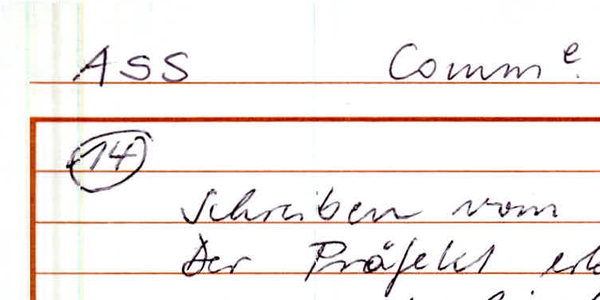 ASS Comm e.
14
Schreiben vom
Der Präfekt